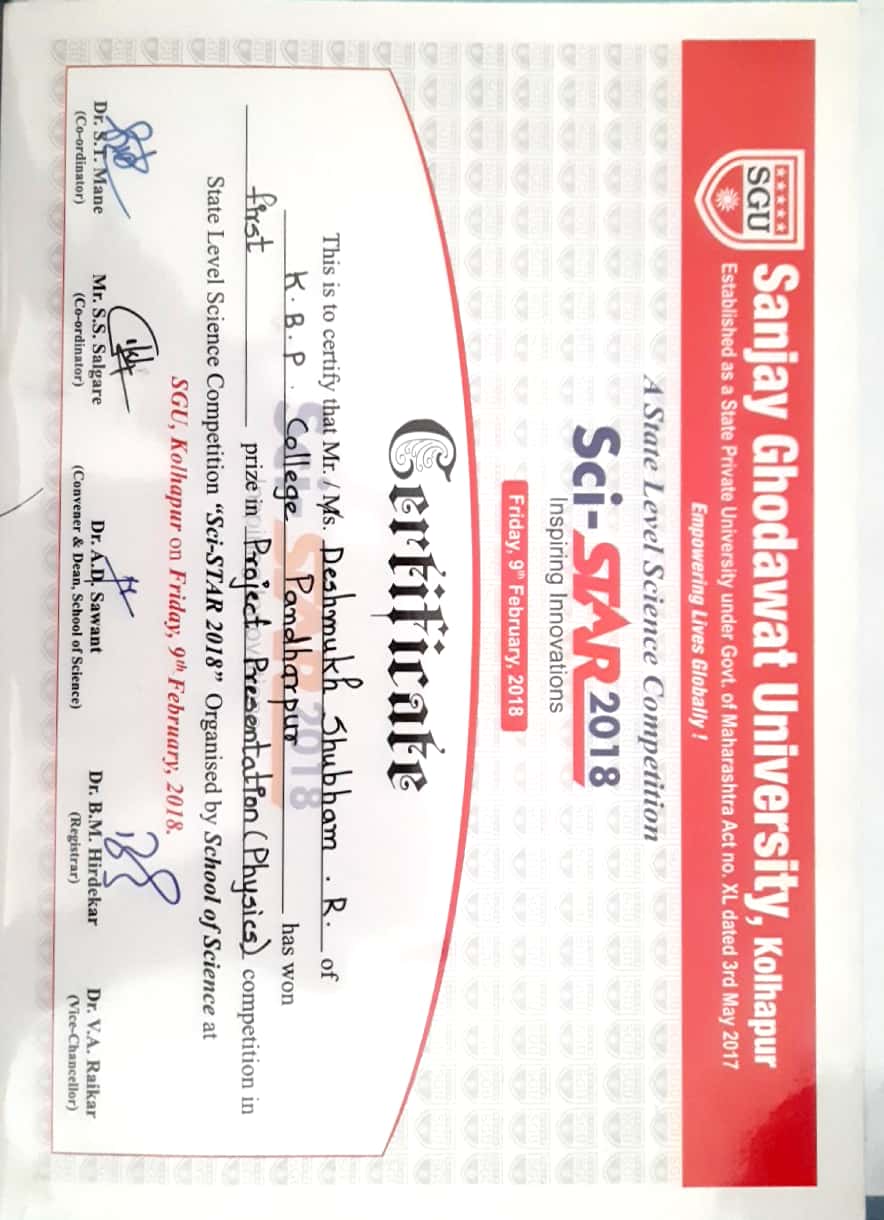 SGU
Sanjay Ghodawat University, Kolhapur
Established as a State Private University under Govt. of Maharashtra Act no. XL dated 3rd May 2017
Empowering Lives Globally !
A State Level Science Competition
Sci-STAR 2018
Inspiring Innovations
Friday, 9th February, 2018
Certificate
This is to certify that Mr. / Ms. Deshmukh Shubham . R. of
K. B. P. College Pandharpur has won
first prize in Project Presentation (Physics) competition in
State Level Science Competition “Sci-STAR 2018” Organised by School of Science at
SGU, Kolhapur on Friday, 9th February, 2018.
Dr. S.T. Mane Mr. S.S. Salgare Dr. A.D. Sawant Dr. B.M. Hirdekar Dr. V.A. Raikar
(Co-ordinator) (Co-ordinator) (Convener & Dean, School of Science) (Registrar) (Vice-Chancellor)